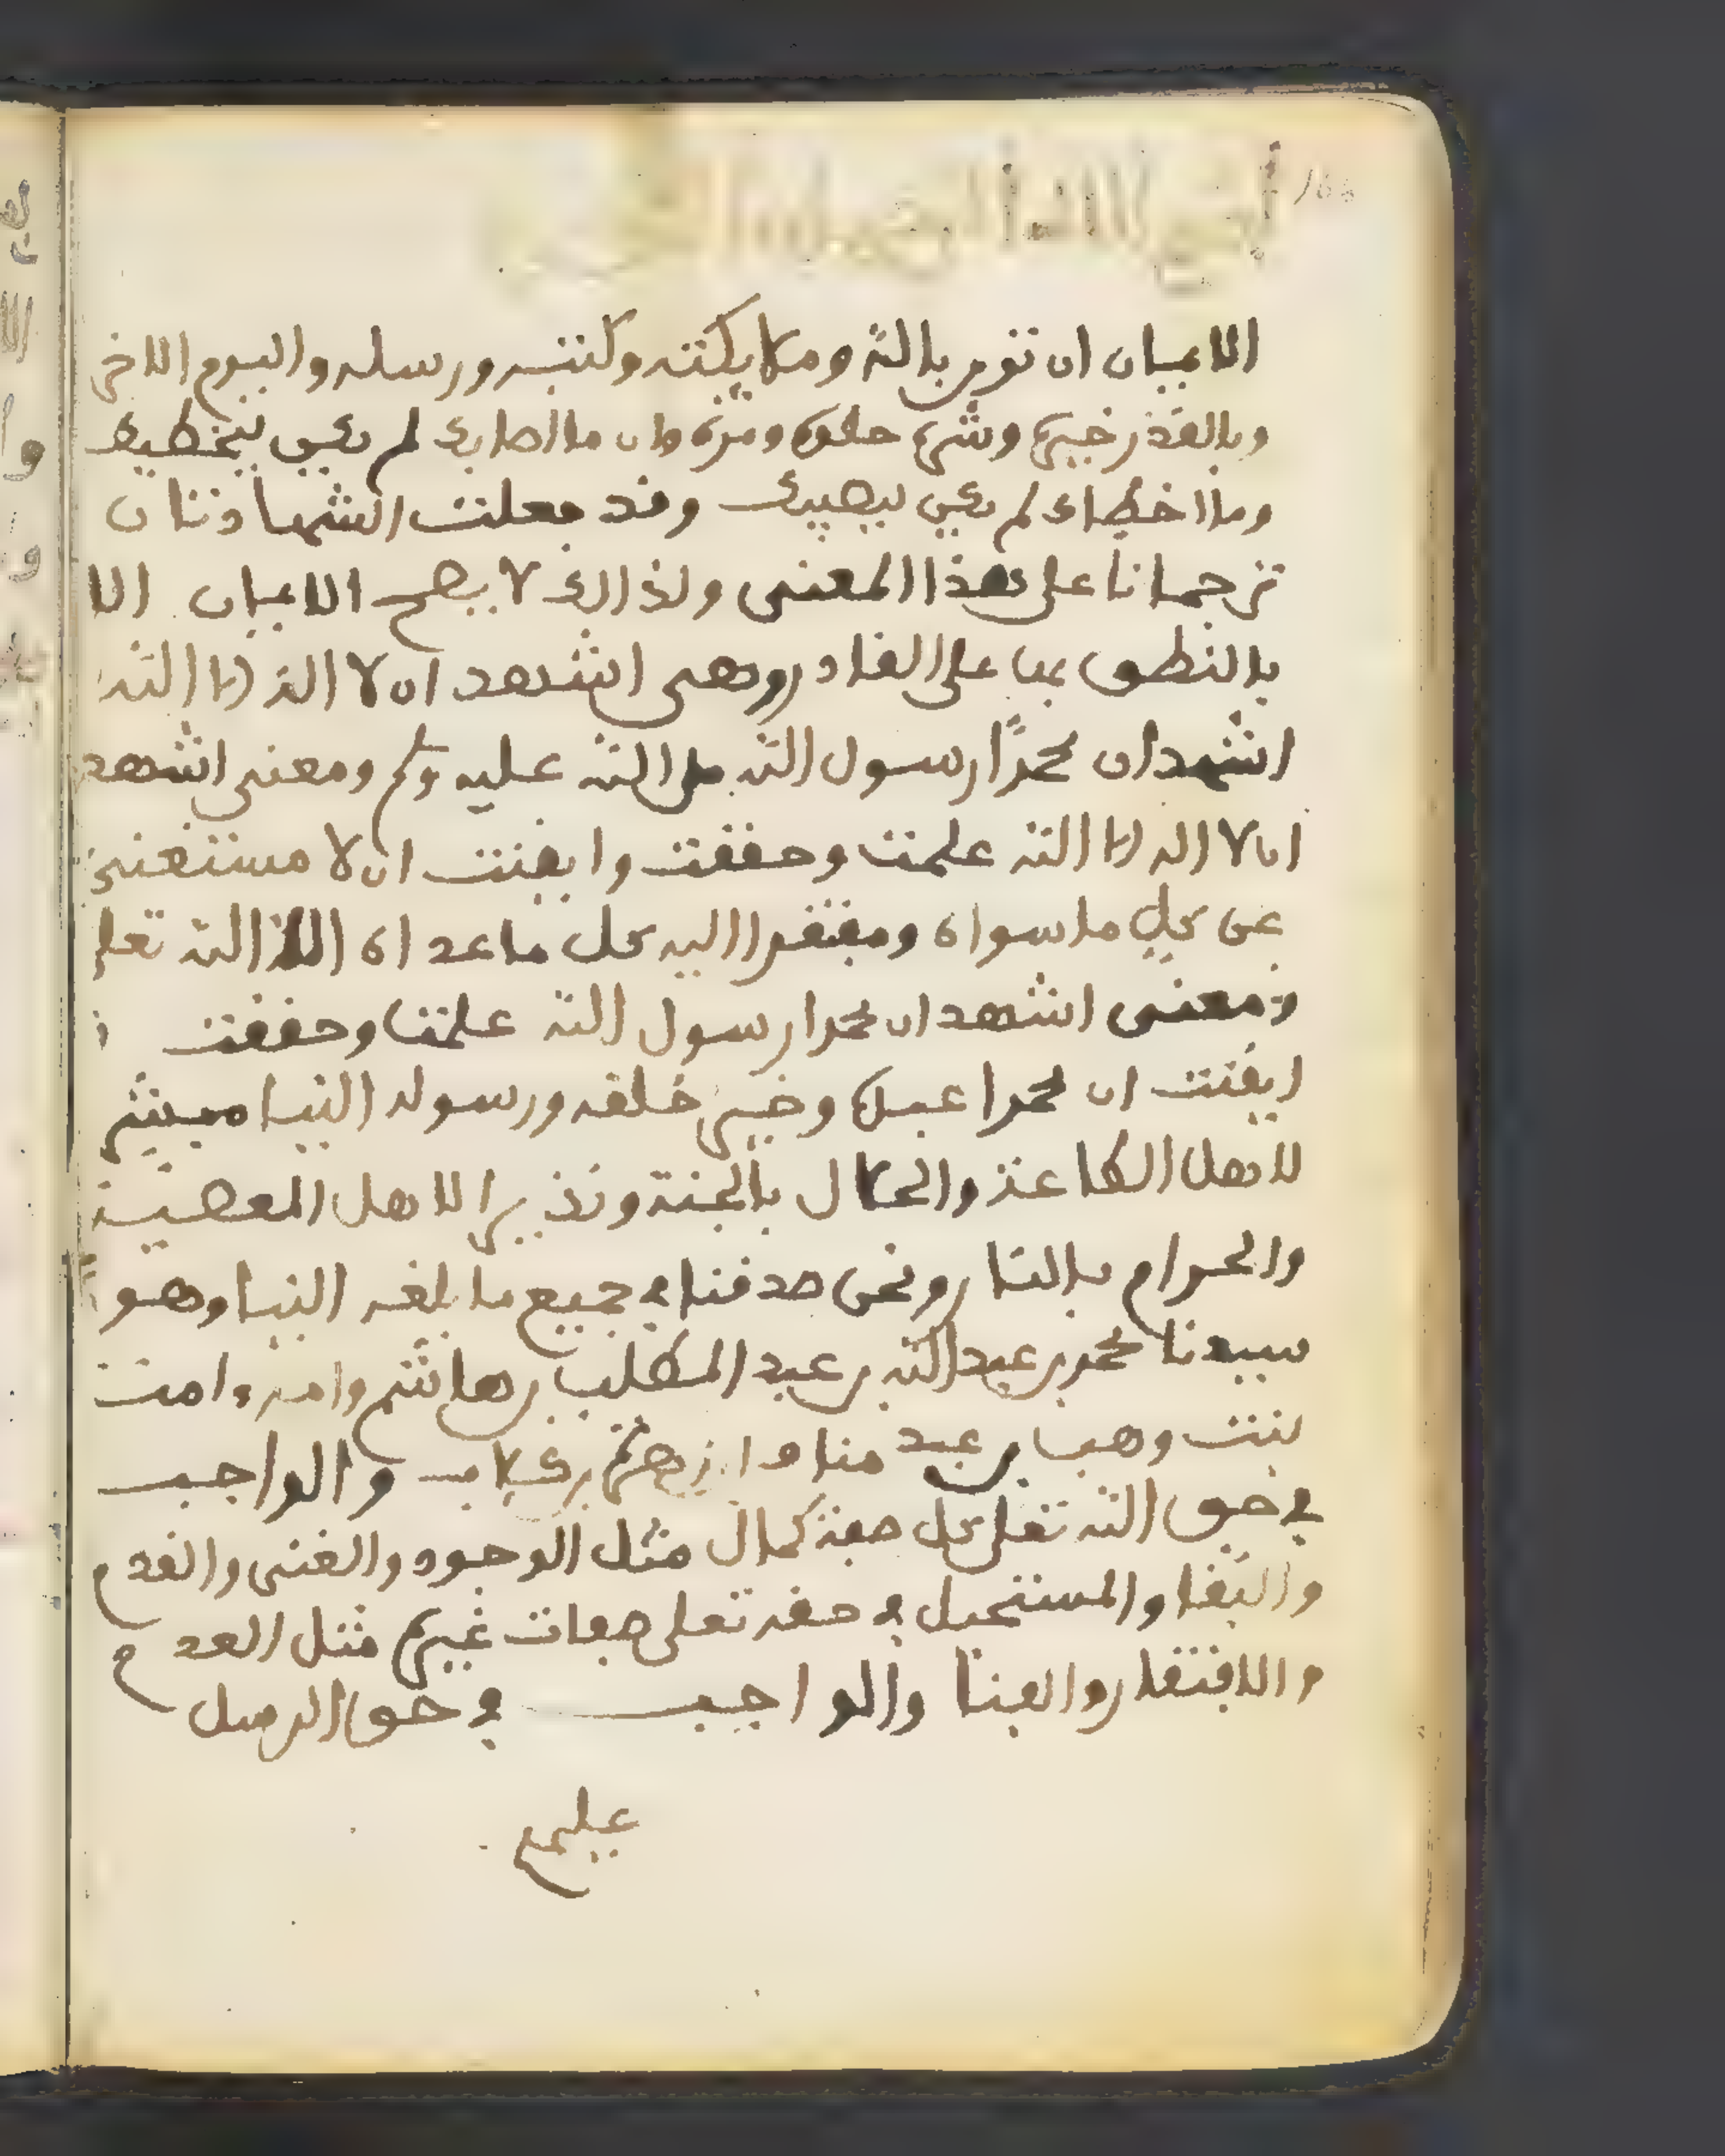 الايمان ان تومن بالله وملايكته وكتبه ورسله واليوم الاخر
وبالقدر خيره وشره حلوه ومره وان ما اصابك لم يكن ليخطيك
وما اخطاك لم يكن ليصيبك وقد جعلت الشهادتان
ترجمانا على هذا المعنى ولذالك لا يصح الايمان الا
بالنطق بها على القادر وهي اشهد ان لا اله الا الله
اشهد ان محمدًا رسول الله صلى الله عليه وسلم ومعنى اشهد
ان لا اله الا الله علمت وحققت وايقنت ان لا مستغني
عن كل ما سواه ومفتقرا اليه كل ما عداه الا الله تعلى
ومعنى اشهد ان محمدا رسول الله علمت وحققت و
ايقنت ان محمدا عبده وخير خلقه ورسوله الينا مبشر
لاهل الطاعة والحلال بالجنة ونذيرا لاهل المعصية
والحرام بالنار ونحن صدقنا في جميع ما بلغه الينا وهو
سيدنا محمد بن عبد الله بن عبد المطلب بن هاشم وامه ءامنت
بنت وهب بن عبد مناف بن زهرة بن كلاب والواجب
في حق الله تعلى كل صفة كمال مثل الوجود والغنى والقدم
والبقا والمستحيل في حقه تعلى صفات غيره مثل العدم
والافتقار والفنا والواجب في حق الرسل
عليهم